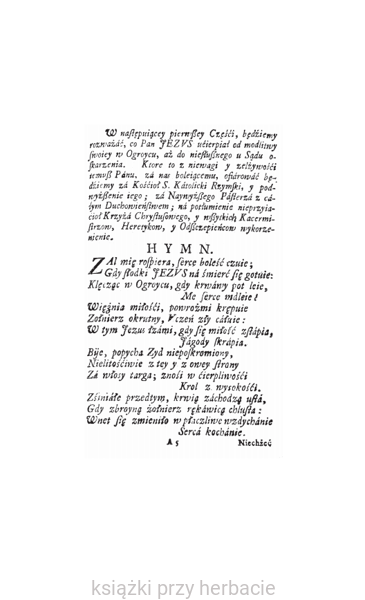 W nastęṗuiącey pierwſzey Częśći, będźiemy
rozważáć, co Pan JEZVS ućierpiał od modlitwy
ſwoiey w Ogroycu, aż do nieſłuſznego u Sądu o-
ſkarżenia. Ktore to z niewagi y zelżywośći
temuß Pánu, zá nas boleiącemu, ofiárowáć bę-
dźiemy zá Kośćioł S. Kátolicki Rzymſki, y pod-
wyżſzenie iego; zá Naywyżſzego Páſterzá z cá-
łym Duchowieńſtwem; ná potłumienie nieprzyia-
cioł Krzyżá Chryſtuſowego, y wſzytkich Kacermi-
ſtrzow, Heretykow, y Odſzczepieńcow wykorze-
nienie.
HYMN.
ZAl mię roſpiera, ſerce boleść czuie;
Gdy ſłodki JEZVS ná śmierć ſię gotuie:
Klęcząc w Ogroycu, gdy krwáwy pot leie,
Me ſerce mdleie!
Więźnia miłośći, powrozmi krępuie
Zołnierz okrutny, Vczeń zły cáłuie:
W tym Jezus łzámi, gdy ſię miłość zſtápia,
Jágody ſkrápia.
Biie, popycha Zyd niepoſkromiony,
Nielitośćiwie z tey y z owey ſtrony
Zá włoſy targa; znośi w ćierpliwośći
Krol z wyſokośći.
Zśiniáłe przedtym, krwią záchodzą uſtá,
Gdy zbroyną żołnierz rękáwicą chluſta:
Wnet ſię zmieniło w płaczliwe wzdychánie
Sercá kochánie.
A 5 Niechżeć
książki przy herbacie